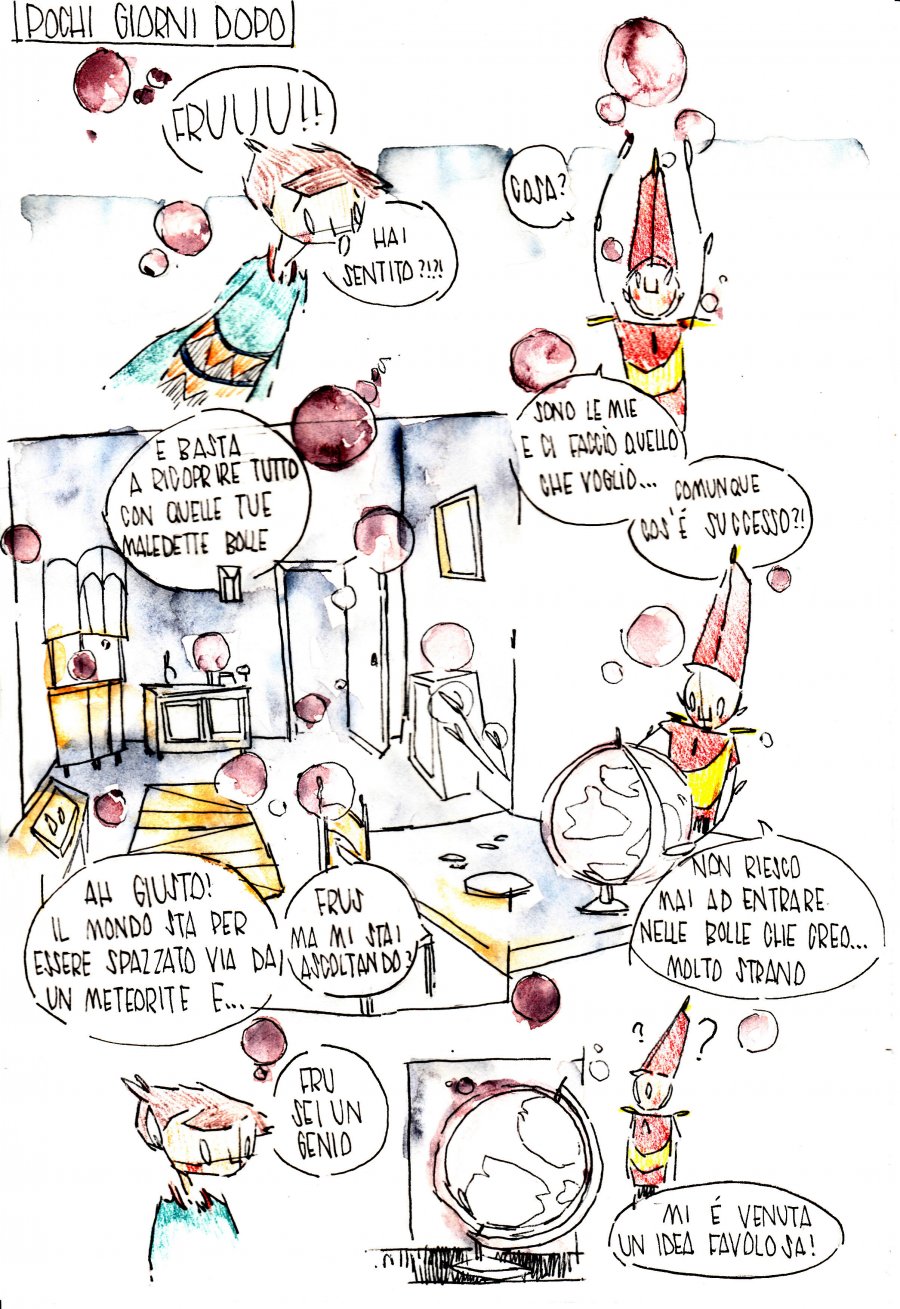 POCHI GIORNI DOPO
FRUUU!!
HAI
SENTITO?!?!
COSA?
E BASTA
A RICOPRIRE TUTTO
CON QUELLE TUE
MALEDETTE BOLLE
SONO LE MIE
E CI FACCIÒ QUELLO
CHE VOGLIO...
COMUNQUE
COS'É SUCCESSO?!
AH GIUSTO!
IL MONDO STA PER
ESSERE SPAZZATO VIA DA
UN METEORITE E...
FRUS
MA MI STAI
ASCOLTANDO?
NON RIESCO
MAI AD ENTRARE
NELLE BOLLE CHE CREO...
MOLTO STRANO
FRU
SEI UN
GENIO
? ?
MI É VENUTA
UN IDEA FAVOLOSA!